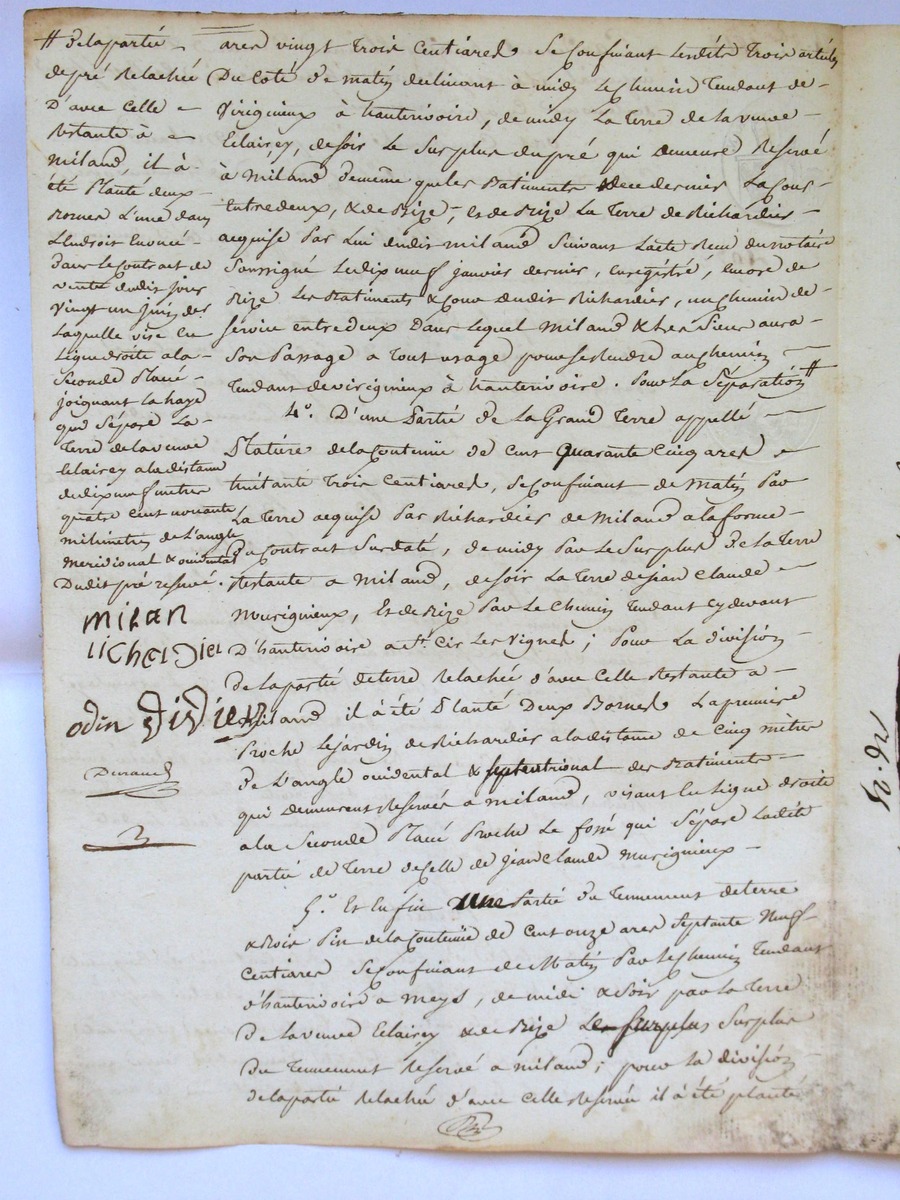 # de la partié
de pré relachée
D'avec Celle
Restante à
miland, il à
été Planté deux
Bornes L'une dans
L'endroit Enoncé
Dans le Contract de
vente dudit jour
vingt un juin de
Laquelle vise En
Ligne droite a la
Seconde Placée
joignant la haye
qui Sépare La
Terre de la veuve
Eclairey a la distance
de dix neuf metres
quatre cent nonante
milimetres de L'angle
meridional & occidental
Dudit pré reservé.
milan
richerdier
odin didier
Durand
ares vingt Trois Centiares Se Confinant Lesdits Trois articles
Du Coté de matin declinant à midy Le Chemin Tendant de
Virigneux à hauterivoire, de midy La Terre de la veuve
Eclairey, de soir Le Surplus du pré qui demeure Reservé
à Miland de même que les Batiments de ce dernier La Cour
Entredeux, & de Bize, et de Bize La Terre de Richardier
acquise Par Lui dudit miland Suivant L'acte Recu du notaire
Soussigné Le dix neuf janvier dernier, Enregistré, encore de
Bize Les Batiments & Cour dudit Richardier, un chemin de
service entredeux Dans Lequel miland & Les Siens aura
Son Passage a Tout usage pour se Rendre au Chemin
Tendant de virigneux à hauterivoire. Pour La Séparation #
4°. D'une Partié de La Grand Terre appellé
Plature de la Contenüe de Cent Quarante Cinq ares
huitante Trois Centiares, Se Confinant de Matin Par
La Terre acquise Par Richardier de Miland a la forme
Du Contract Surdaté, de midy Par Le Surplus De La Terre
Restante a Miland, de soir La Terre de jean Claude
Mourigneux, Et de Bize Par Le Chemin Tendant cy devant
D'hauterivoire a St. Cir Les Vignes; Pour La division
de la partié de terre Relachée d'avec Celle Restante a
Miland il à été Planté Deux Bornes La premiere
Proche Le jardin de Richardier a la distance de Cinq mètres
de L'angle occidental & septentrional des Batiments
qui demeurent Reservés a miland, visant En Ligne droite
a la Seconde Placé Proche Le fossé qui Sépare Ladite
partié de Terre de Celle de jean Claude murigneux
5°. Et En fin Une Partié du Tennement de terre
& Bois Pin de la Contenüe de Cent onze ares Septante Neuf
Centiares Se Confinant de Matin Par Le Chemin Tendant
d'hauterivoire a Meys, de midi & Soir par La Terre
de La veuve Eclairey & de Bize Le Surplus Surplus
du Tennement Reservé a miland; pour la division
de la partié Relachée d'avec Celle Reservée il à été planté